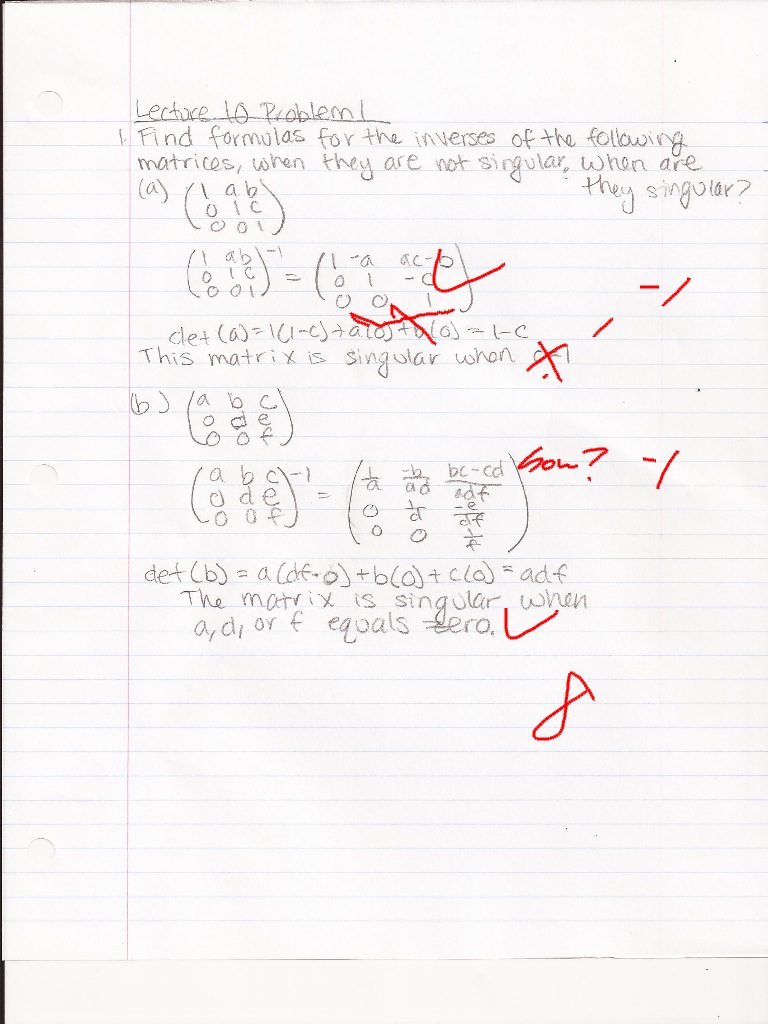 Lecture 10 Problem 1
1. Find formulas for the inverses of the following
matrices, when they are not singular. When are
they singular?
(a) (1 a b
0 1 c
0 0 1)
(1 a b
0 1 c
0 0 1)^-1 = (1 -a ac-b
0 1 -c
0 0 1)
-1
det(a) = 1(1-c)+a(0)+b(0) = 1-c
This matrix is singular when c=1
(b) (a b c
0 d e
0 0 f)
(a b c
0 d e
0 0 f)^-1 = (1/a -b/ad bc-cd/adf
0 1/d -e/df
0 0 1/f)
How? -1
det(b) = a(df-0)+b(0)+c(0) = adf
The matrix is singular when
a, d, or f equals zero.
8